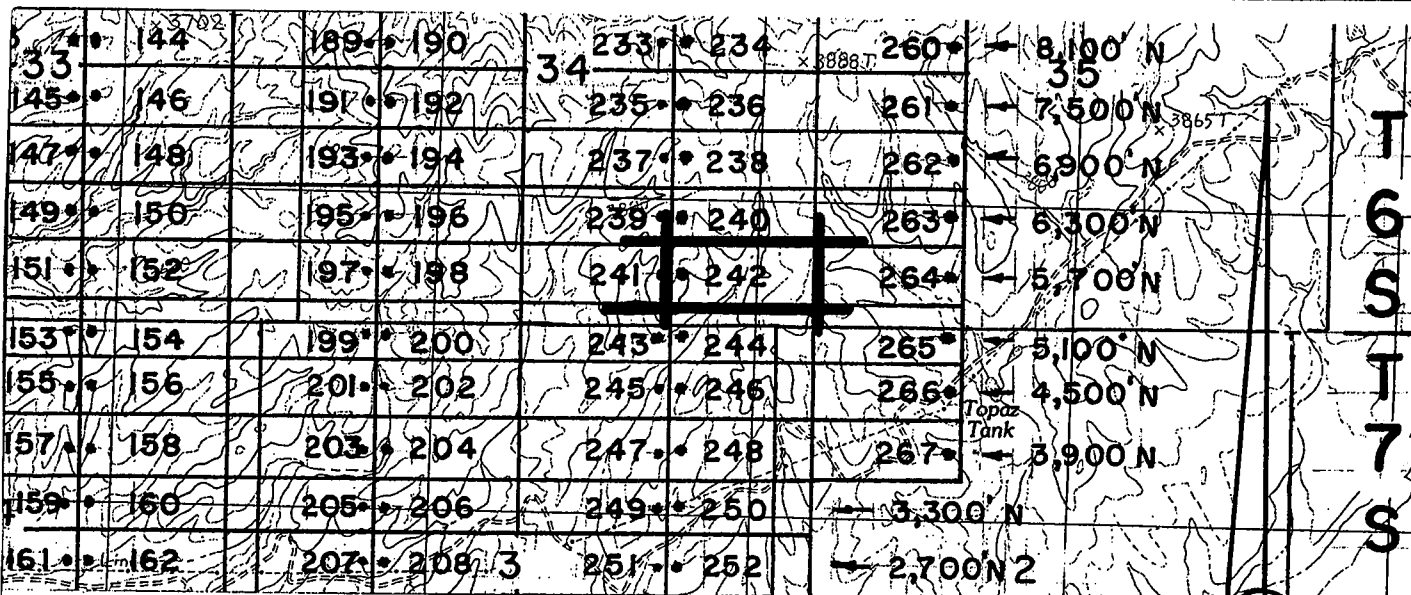 3702
144 189 190 233 234 260 8,100' N
33 34 3888T 35
145 146 191 192 235 236 261 7,500' N
3865T
147 148 193 194 237 238 262 6,900' N
149 150 195 196 239 240 263 6,300' N
151 152 197 198 241 242 264 5,700' N
T
6
S
153 154 199 200 243 244 265 5,100' N
155 156 201 202 245 246 266 4,500' N
Topaz
Tank
157 158 203 204 247 248 267 3,900' N
159 160 205 206 249 250 3,300' N
161 162 207 208 3 251 252 2,700' N 2
T
7
S